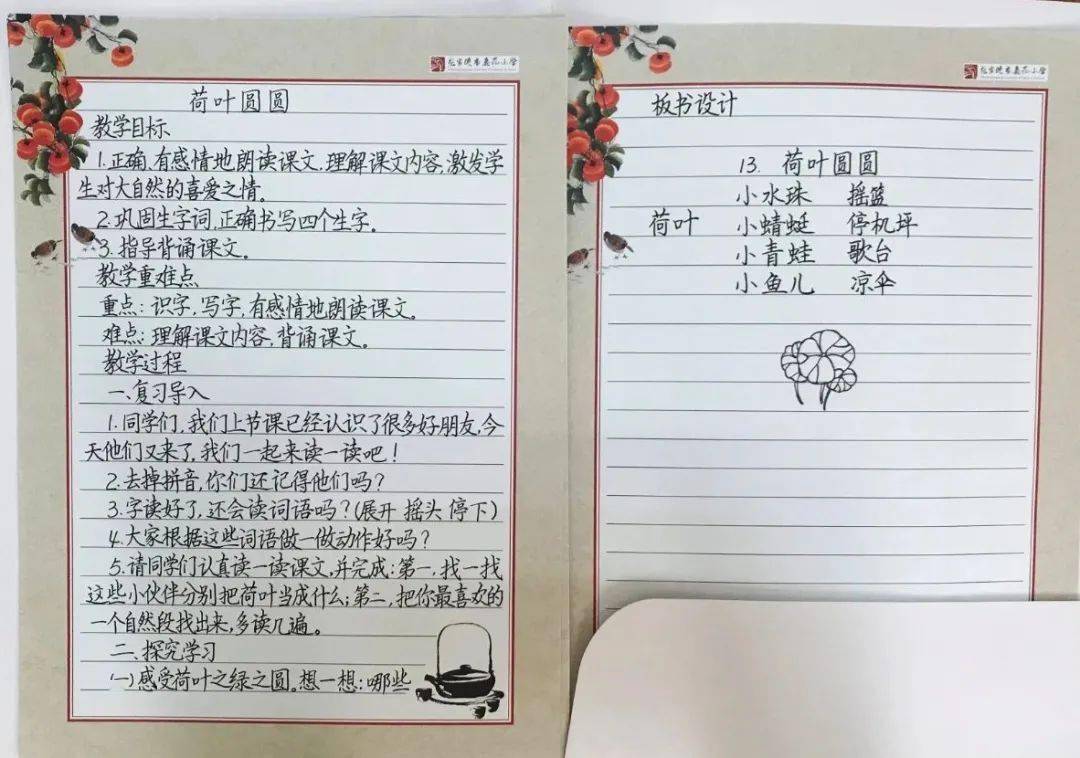 荷叶圆圆
教学目标
1.正确、有感情地朗读课文,理解课文内容,激发学
生对大自然的喜爱之情。
2.巩固生字词,正确书写四个生字。
3.指导背诵课文。
教学重难点
重点:识字,写字,有感情地朗读课文。
难点:理解课文内容,背诵课文。
教学过程
一、复习导入
1.同学们,我们上节课已经认识了很多好朋友,今
天他们又来了,我们一起来读一读吧!
2.去掉拼音,你们还记得他们吗?
3.字读好了,还会读词语吗?(展开 摇头 停下)
4.大家根据这些词语做一做动作好吗?
5.请同学们认真读一读课文,并完成:第一,找一找
这些小伙伴分别把荷叶当成什么;第二,把你最喜欢的
一个自然段找出来,多读几遍。
二、探究学习
(一)感受荷叶之绿之圆。想一想:哪些
板书设计
13. 荷叶圆圆
小水珠 摇篮
荷叶 小蜻蜓 停机坪
小青蛙 歌台
小鱼儿 凉伞